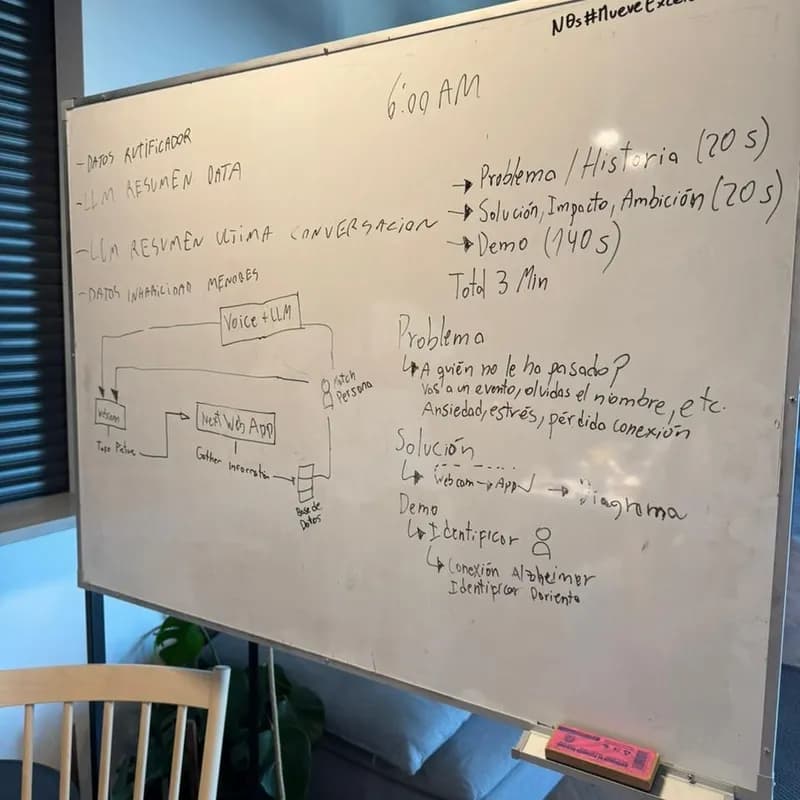 6:00 AM
- DATOS RUTIFICADOR
- LLM RESUMEN DATA
- LLM RESUMEN ULTIMA CONVERSACION
- DATOS INHABILIDAD MENORES
→ Problema / Historia (20 s)
→ Solución, Impacto, Ambición (20 s)
→ Demo (140 s)
Total 3 Min
Voice + LLM
Match
Persona
Webcam
Take Picture
Next Web App
Gather Information
Base de
Datos
Problema
↳ A quién no le ha pasado?
Vas a un evento, olvidas el nombre, etc.
Ansiedad, estrés, pérdida conexión
Solución
↳ Webcam → App → Diagrama
Demo
↳ Identificar
↳ Conexión Alzheimer
Identificar Pariente